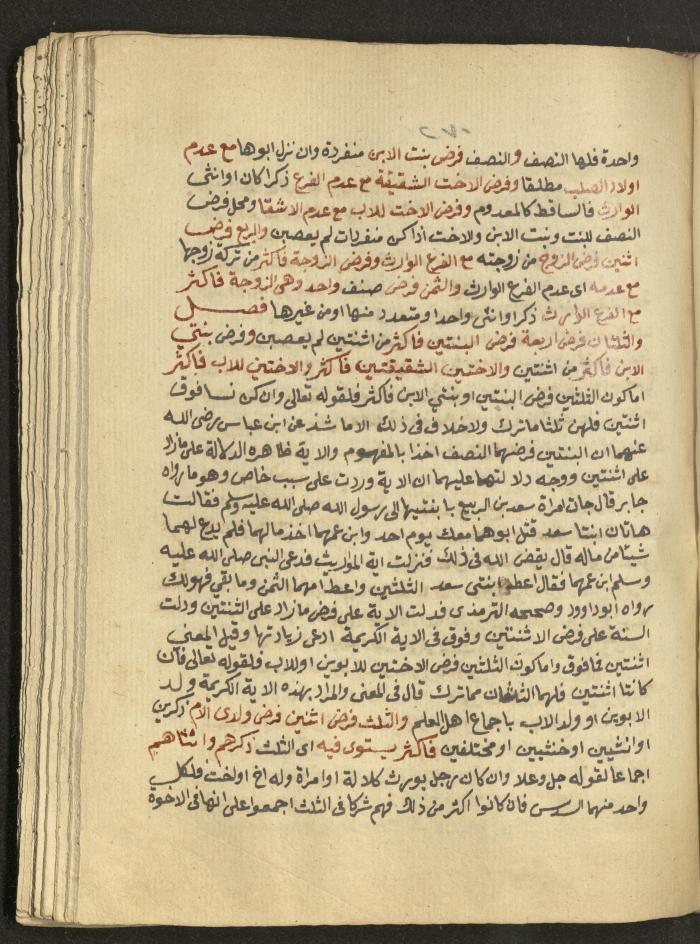 واحدة فلها النصف والنصف فرض بنت الابن منفردة وان نزل ابوها مع عدم
اولاد الصلب مطلقا وفرض الاخت الشقيقة مع عدم الفرع ذكرا كان او انثى
الوارث فالساقط كالمعدوم وفرض الاخت للاب مع عدم الاشقا ومحل فرض
النصف للبنت وبنت الابن والاخت اذا كن منفردات لم يعصبن والربع فرض
اثنين فرض الزوج من زوجته مع الفرع الوارث وفرض الزوجة فاكثر من تركة زوجها
مع عدمه اى عدم الفرع الوارث والثمن فرض صنف واحد وهى الزوجة فاكثر
مع الفرع الوارث ذكرا او انثى واحد او متعدد منها او من غيرها فصل
والثلثان فرض اربعة فرض البنتين فاكثر من اثنتين لم يعصبن وفرض بنتي
الابن فاكثر من اثنتين والاختين الشقيقتين فاكثر والاختين للاب فاكثر
اما كون الثلثين فرض البنتين او بنتي الابن فاكثر فلقوله تعالى وان كن نسا فوق
اثنتين فلهن ثلثا ما ترك ولا خلاف في ذلك الا ما شذ عن ابن عباس رضى الله
عنهما ان البنتين فرضهما النصف اخذا بالمفهوم والاية ظاهرة الدلالة على مازاد
على اثنتين ووجه دلالتها عليهما ان الاية وردت على سبب خاص وهو ما رواه
جابر قال جات امراة سعد بن الربيع بابنتيها الى رسول الله صلى الله عليه وسلم فقالت
هاتان ابنتا سعد قتل ابوهما معك يوم احد وابن عمهما اخذ مالهما فلم يدع لهما
شيئا من ماله قال يقض الله فى ذلك فنزلت اية المواريث فدعى النبى صلى الله عليه
وسلم ابن عمهما فقال اعط ابنتى سعد الثلثين واعط امهما الثمن وما بقي فهو لك
رواه ابو داوود وصححه الترمذى فدلت الاية على فرض مازاد على الثنتين ودلت
السنة على فرض الاثنتين وفوق فى الاية الكريمة ادعى زيادتها وقيل المعنى
اثنتين فما فوق واما كون الثلثين فرض الاختين للابوين او للاب فلقوله تعالى فان
كانتا اثنتين فلهما الثلثان مما ترك قال فى المغنى والمراد بهذه الاية الكريمة ولد
الابوين او ولد الاب باجماع اهل العلم والثلث فرض اثنين فرض ولدى الام ذكرين
او انثيين او خنثيين او مختلفين فاكثر يستوى فيه اى الثلث ذكرهم وانثاهم
اجماعا لقوله جل وعلا وان كان رجل يورث كلالة او امراة وله اخ او اخت فلكل
واحد منهما السدس فان كانوا اكثر من ذلك فهم شركا فى الثلث اجمعوا على انها فى الاخوة